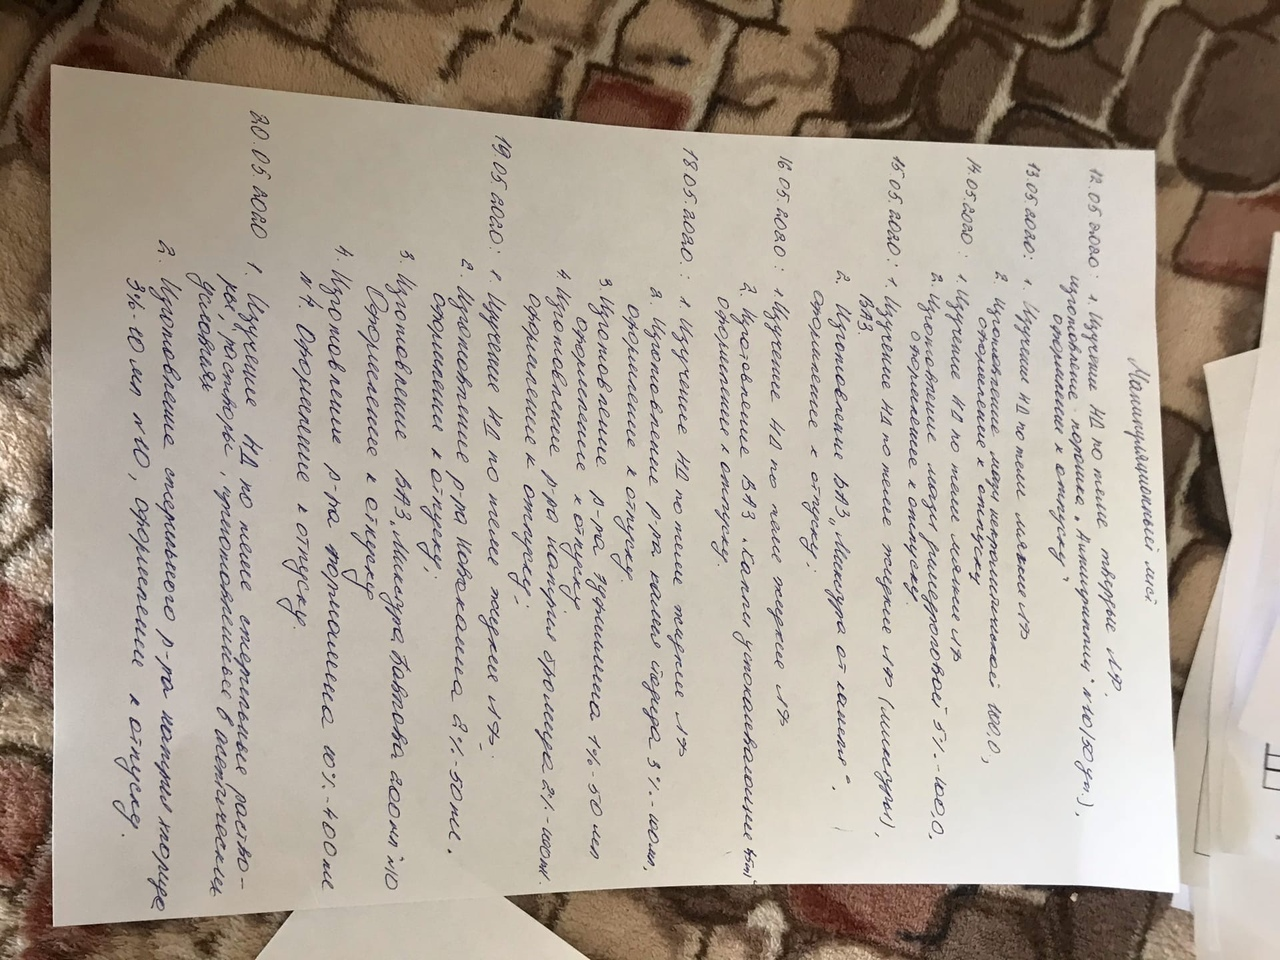 Манипуляционный лист
12.05.2020: 1. Изучение НД по теме твердые ЛФ.
изготовление порошка "Антигриппин" №10 (50 уп.),
оформление к отпуску
13.05.2020: 1. Изучение НД по теме мягкие ЛФ
2. Изготовление мази нейтральной 100,0,
оформление к отпуску
14.05.2020: 1. Изучение НД по теме мягкие ЛФ
2. Изготовление мази 5% - 100,0,
оформление к отпуску.
15.05.2020: 1. Изучение НД по теме жидкие ЛФ (микстуры),
ВАЗ.
2. Изготовление ВАЗ "Микстура от кашля",
оформление к отпуску.
16.05.2020: 1. Изучение НД по теме жидкие ЛФ
2. Изготовление ВАЗ "Капли успокаивающие
оформление к отпуску.
18.05.2020: 1. Изучение НД по теме жидкие ЛФ
2. Изготовление р-ра калия йодида 3% - 100мл,
оформление к отпуску.
3. Изготовление р-ра 1% - 50 мл
оформление к отпуску
4. Изготовление р-ра натрия бромида 2% - 100мл.
оформление к отпуску.
19.05.2020: 1. Изучение НД по теме жидкие ЛФ.
2. Изготовление р-ра новокаина 2% - 50мл.
оформление к отпуску.
3. Изготовление ВАЗ "Микстура Павлова 200мл" №10
Оформление к отпуску
4. Изготовление р-ра формалина 10% - 400мл
№4. Оформление к отпуску.
20.05.2020 1. Изучение НД по теме стерильные раство-
ры, растворы, приготовленные в асептических
условиях
2. Изготовление стерильного р-ра натрия хлорида
3% 10 мл №10, оформление к отпуску.